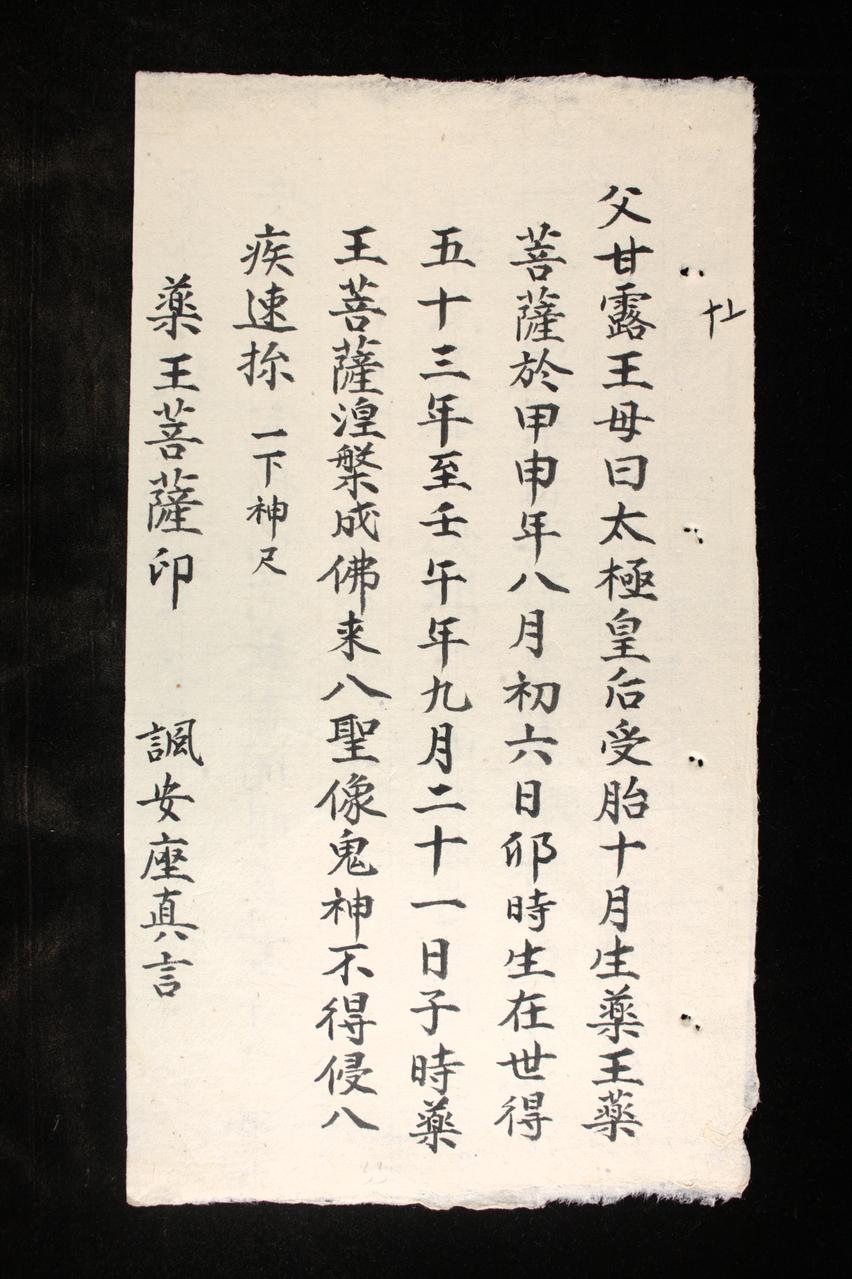 父甘露王母曰太極皇后受胎十月生藥王藥
菩薩於甲申年八月初六日卯時生在世得
五十三年至壬午年九月二十一日子時藥
王菩薩湼槃成佛来八聖像鬼神不得侵八
疾速 一下神尺
藥王菩薩印 諷安座真言